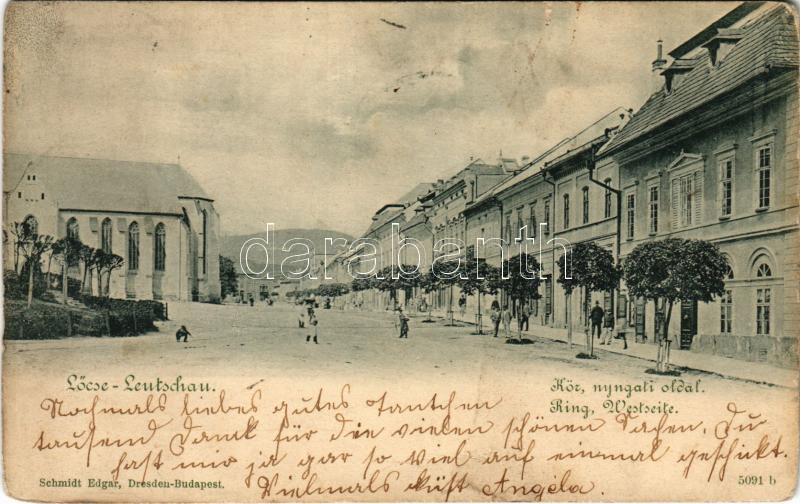 darabanth
Lőcse-Leutschau.
Kör, nyugati oldal.
Ring, Westseite.
Nochmals liebes gutes Tantchen
tausend Dank für die vielen schönen Sachen. Du
hast mir ja gar so viel auf einmal geschickt.
Vielmals küßt Angéla.
Schmidt Edgar, Dresden-Budapest.
5091 b